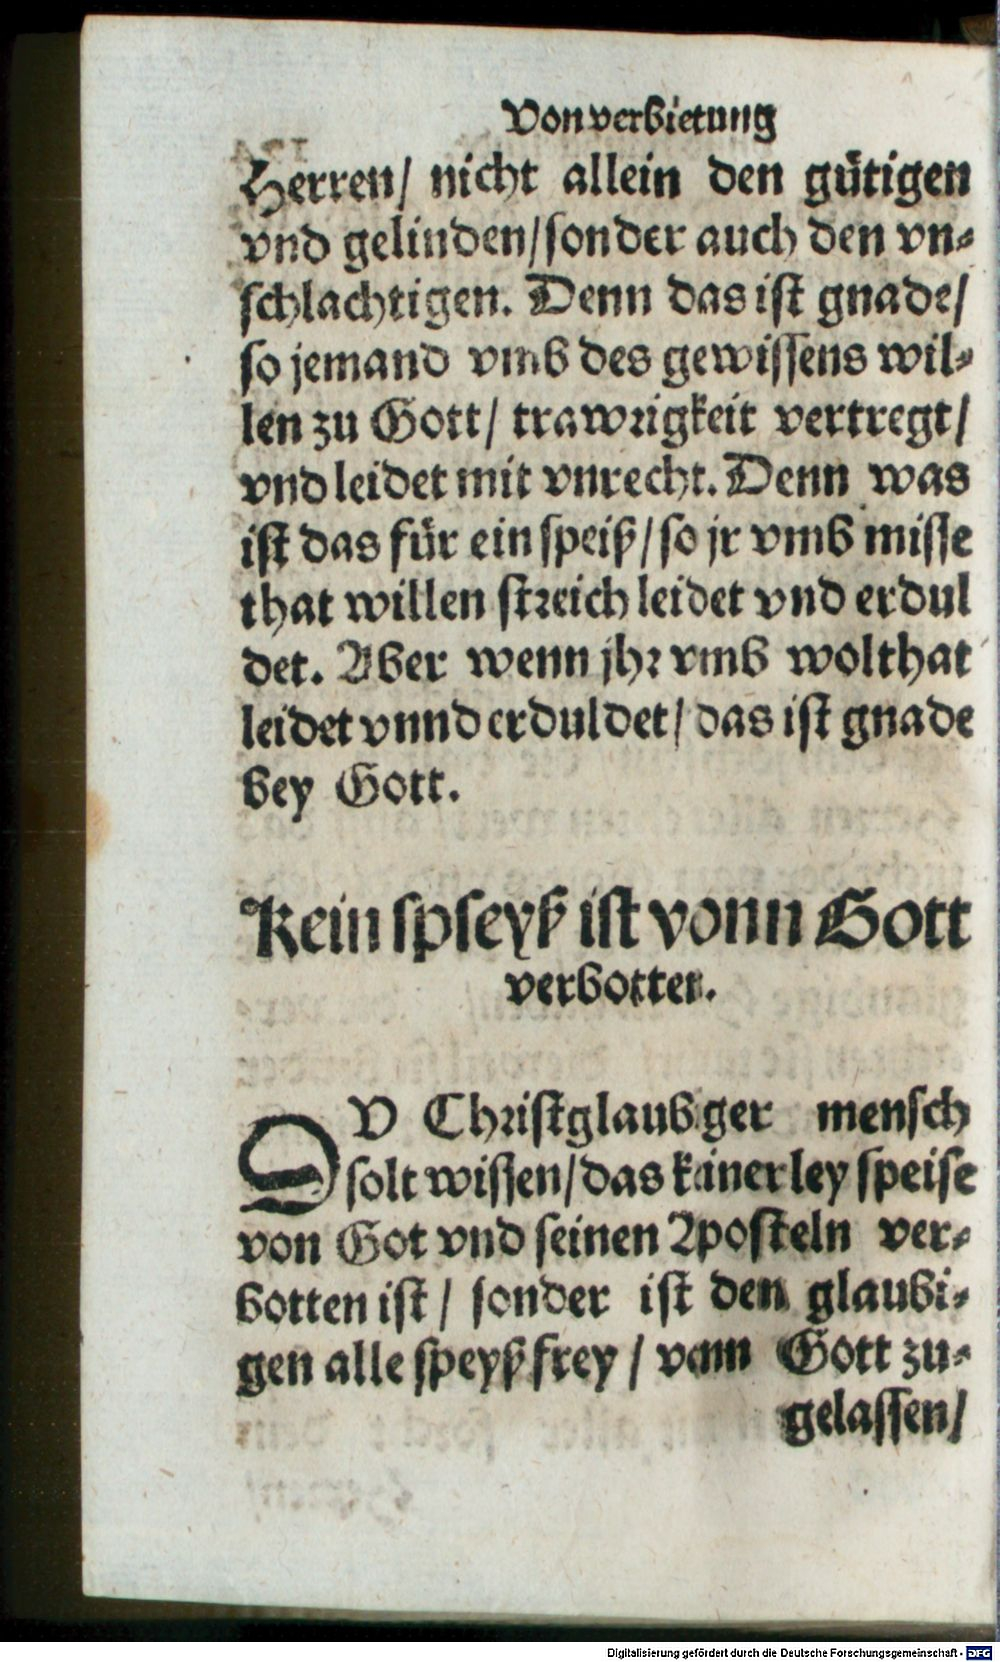 Von verbietung
Herren/ nicht allein den gütigen
vnd gelinden/sonder auch den vn-
schlachtigen. Denn das ist gnade/
so jemand vmb des gewissens wil-
len zu Gott/ trawrigkeit vertregt/
vnd leidet mit vnrecht. Denn was
ist das für ein speiß/so jr vmb misse
that willen streich leidet vnd erdul
det. Aber wenn jhr vmb wolthat
leidet vnnd erduldet/ das ist gnade
bey Gott.
Kein spseyß ist vonn Gott
verbotten.
DV Christglaubiger mensch
solt wissen/das keinerley speise
von Got vnd seinen Aposteln ver-
botten ist/ sonder ist den glaubi-
gen alle speyß frey/ vonn Gott zu-
gelassen/
Digitalisierung gefördert durch die Deutsche Forschungsgemeinschaft - DFG